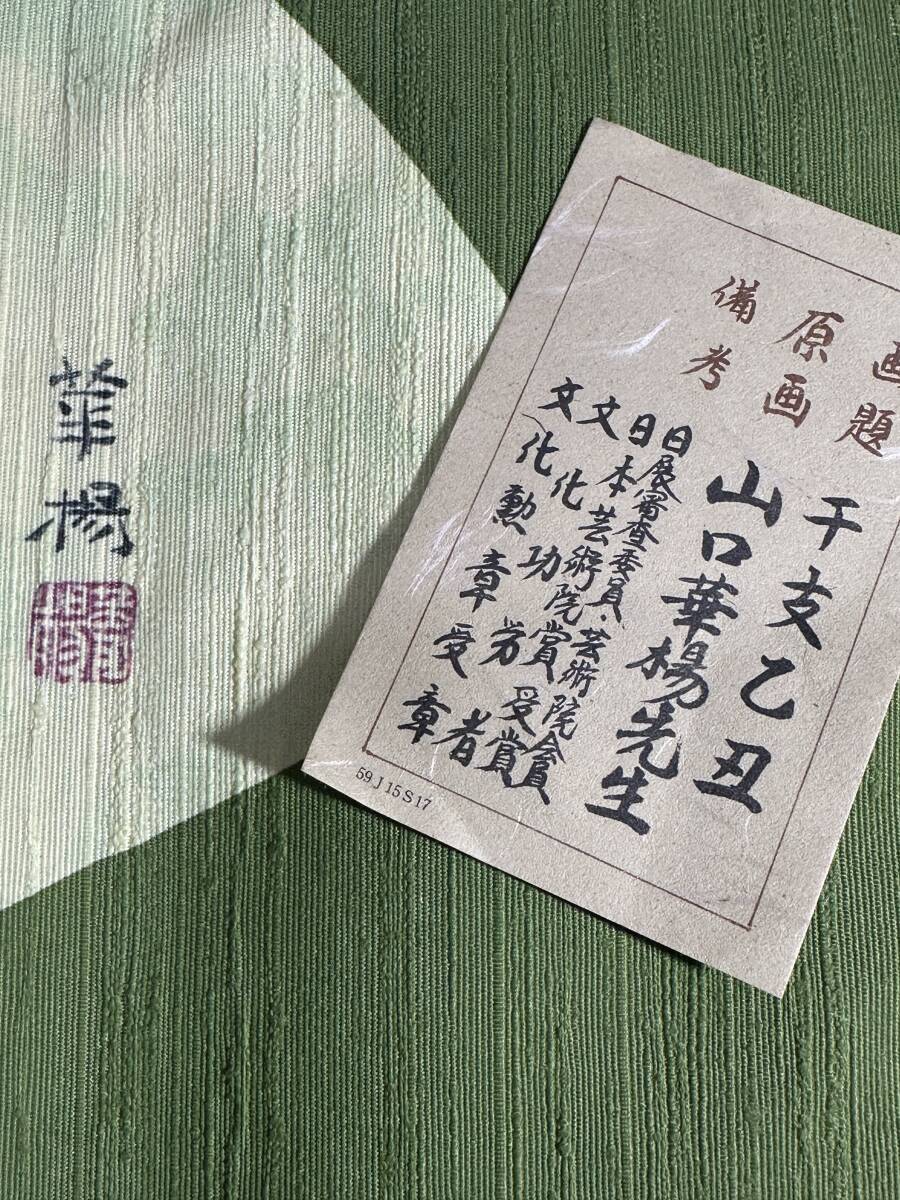 画題 干支乙丑
原画 山口華楊先生
備考
日展審査委員、芸術院會員
日本芸術院賞受賞
文化功労者
文化勲章受章
59J15S17
華楊